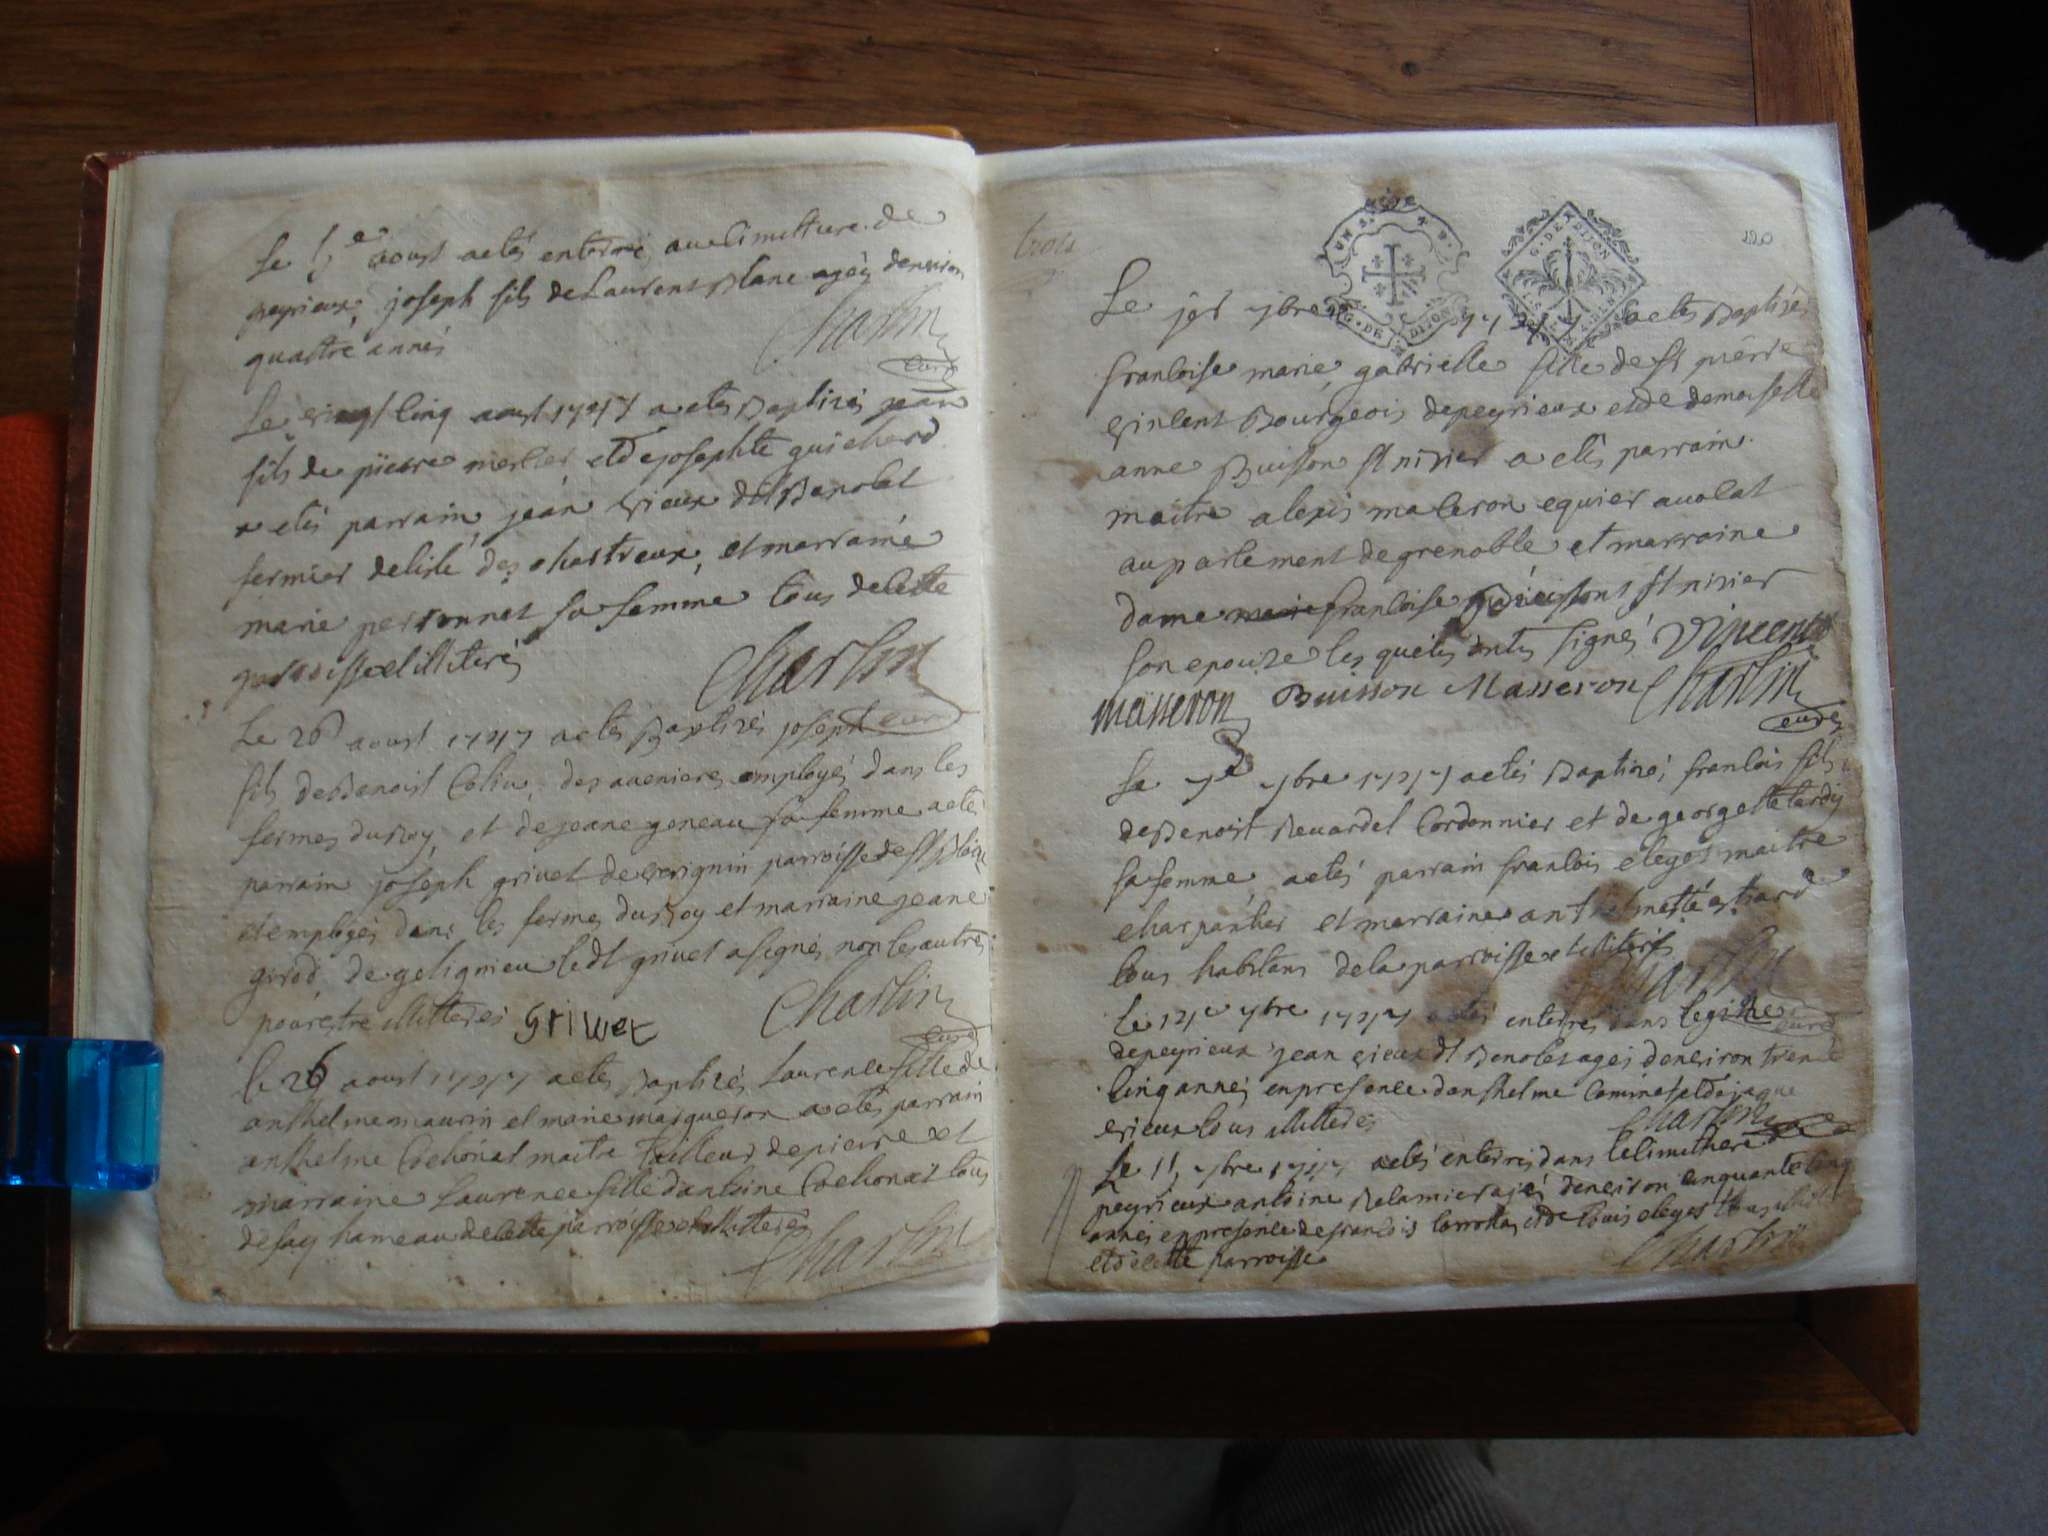 Le 5e aoust a etés enterré au cimittiere de
peyrieux joseph fils de Laurent Blanc agéz denviron
quattre années
Charlin
curé
Le vingt cinq aoust 1727 a etés Baptizés jean
fils de pierre mercier et de josephte guichard
a etés parrain jean vieux dit Benolet
fermier de lisle des chartreux, et marraine
marie perronnet sa femme tous de cette
parroisse et illiterés
Charlin
curé
Le 26 aoust 1727 a etés Baptizés joseph
fils de Benoist Colin des avenieres employés dans les
fermes du Roy, et de jeane geneau sa femme a etés
parrain joseph grivet de parroisse de st Blaise
et employés dans les fermes du Roy et marraine jeane
girod de gelignieu ledt grivet a signés non les autres
pour estre illitterés Griwet
Charlin
curé
le 26 aoust 1727 a etés Baptizés Laurence fille de
anthelme maurin et marie masqueron a etés parrain
anthelme Cochonat maitre tailleur de pierre et
marraine Laurence fille dantoine Cochonat tous
de fay hameau de cette parroisse et illitterés
Charlin
trois
120
UN S.
G. DE DIJON
G. DE DIJON
Le jer 7bre 1727 a etés Baptizés
francoise marie gabrielle fille de sr pierre
vincent Bourgeois de peyrieux et de demoiselle
anne Buisson st nizier a etés parrain
maitre alexis maceron equier avocat
au parlement de grenoble et marraine
dame francoise Buisson st nizier
son epouze les quels ont signés Vincent
masseron Buisson Masseron Charlin
curé
Le 7e 7bre 1727 a etés Baptizés francois fils
de Benoist Revardel Cordonnier et de georgette tardy
sa femme a etés parrain francois eleyet maitre
charpantier et marraine anthelmette
tous habitans de la parroisse et illiterés
Charlin
curé
Le 12e 7bre 1727 a etés enterrés dans legise
de peyrieux jean vieux dt Benolet agés denviron trente
cinq années en presence danthelme Cominet et de jaque
vieux tous illitterés
Charlin
Le 15 7bre 1727 a etés enterrés dans le cimithere
peyrieux antoine Relamier agés denviron cinquante cinq
années en presence de francois et de louis eleyet tous
et de cette parroisse
Charlin